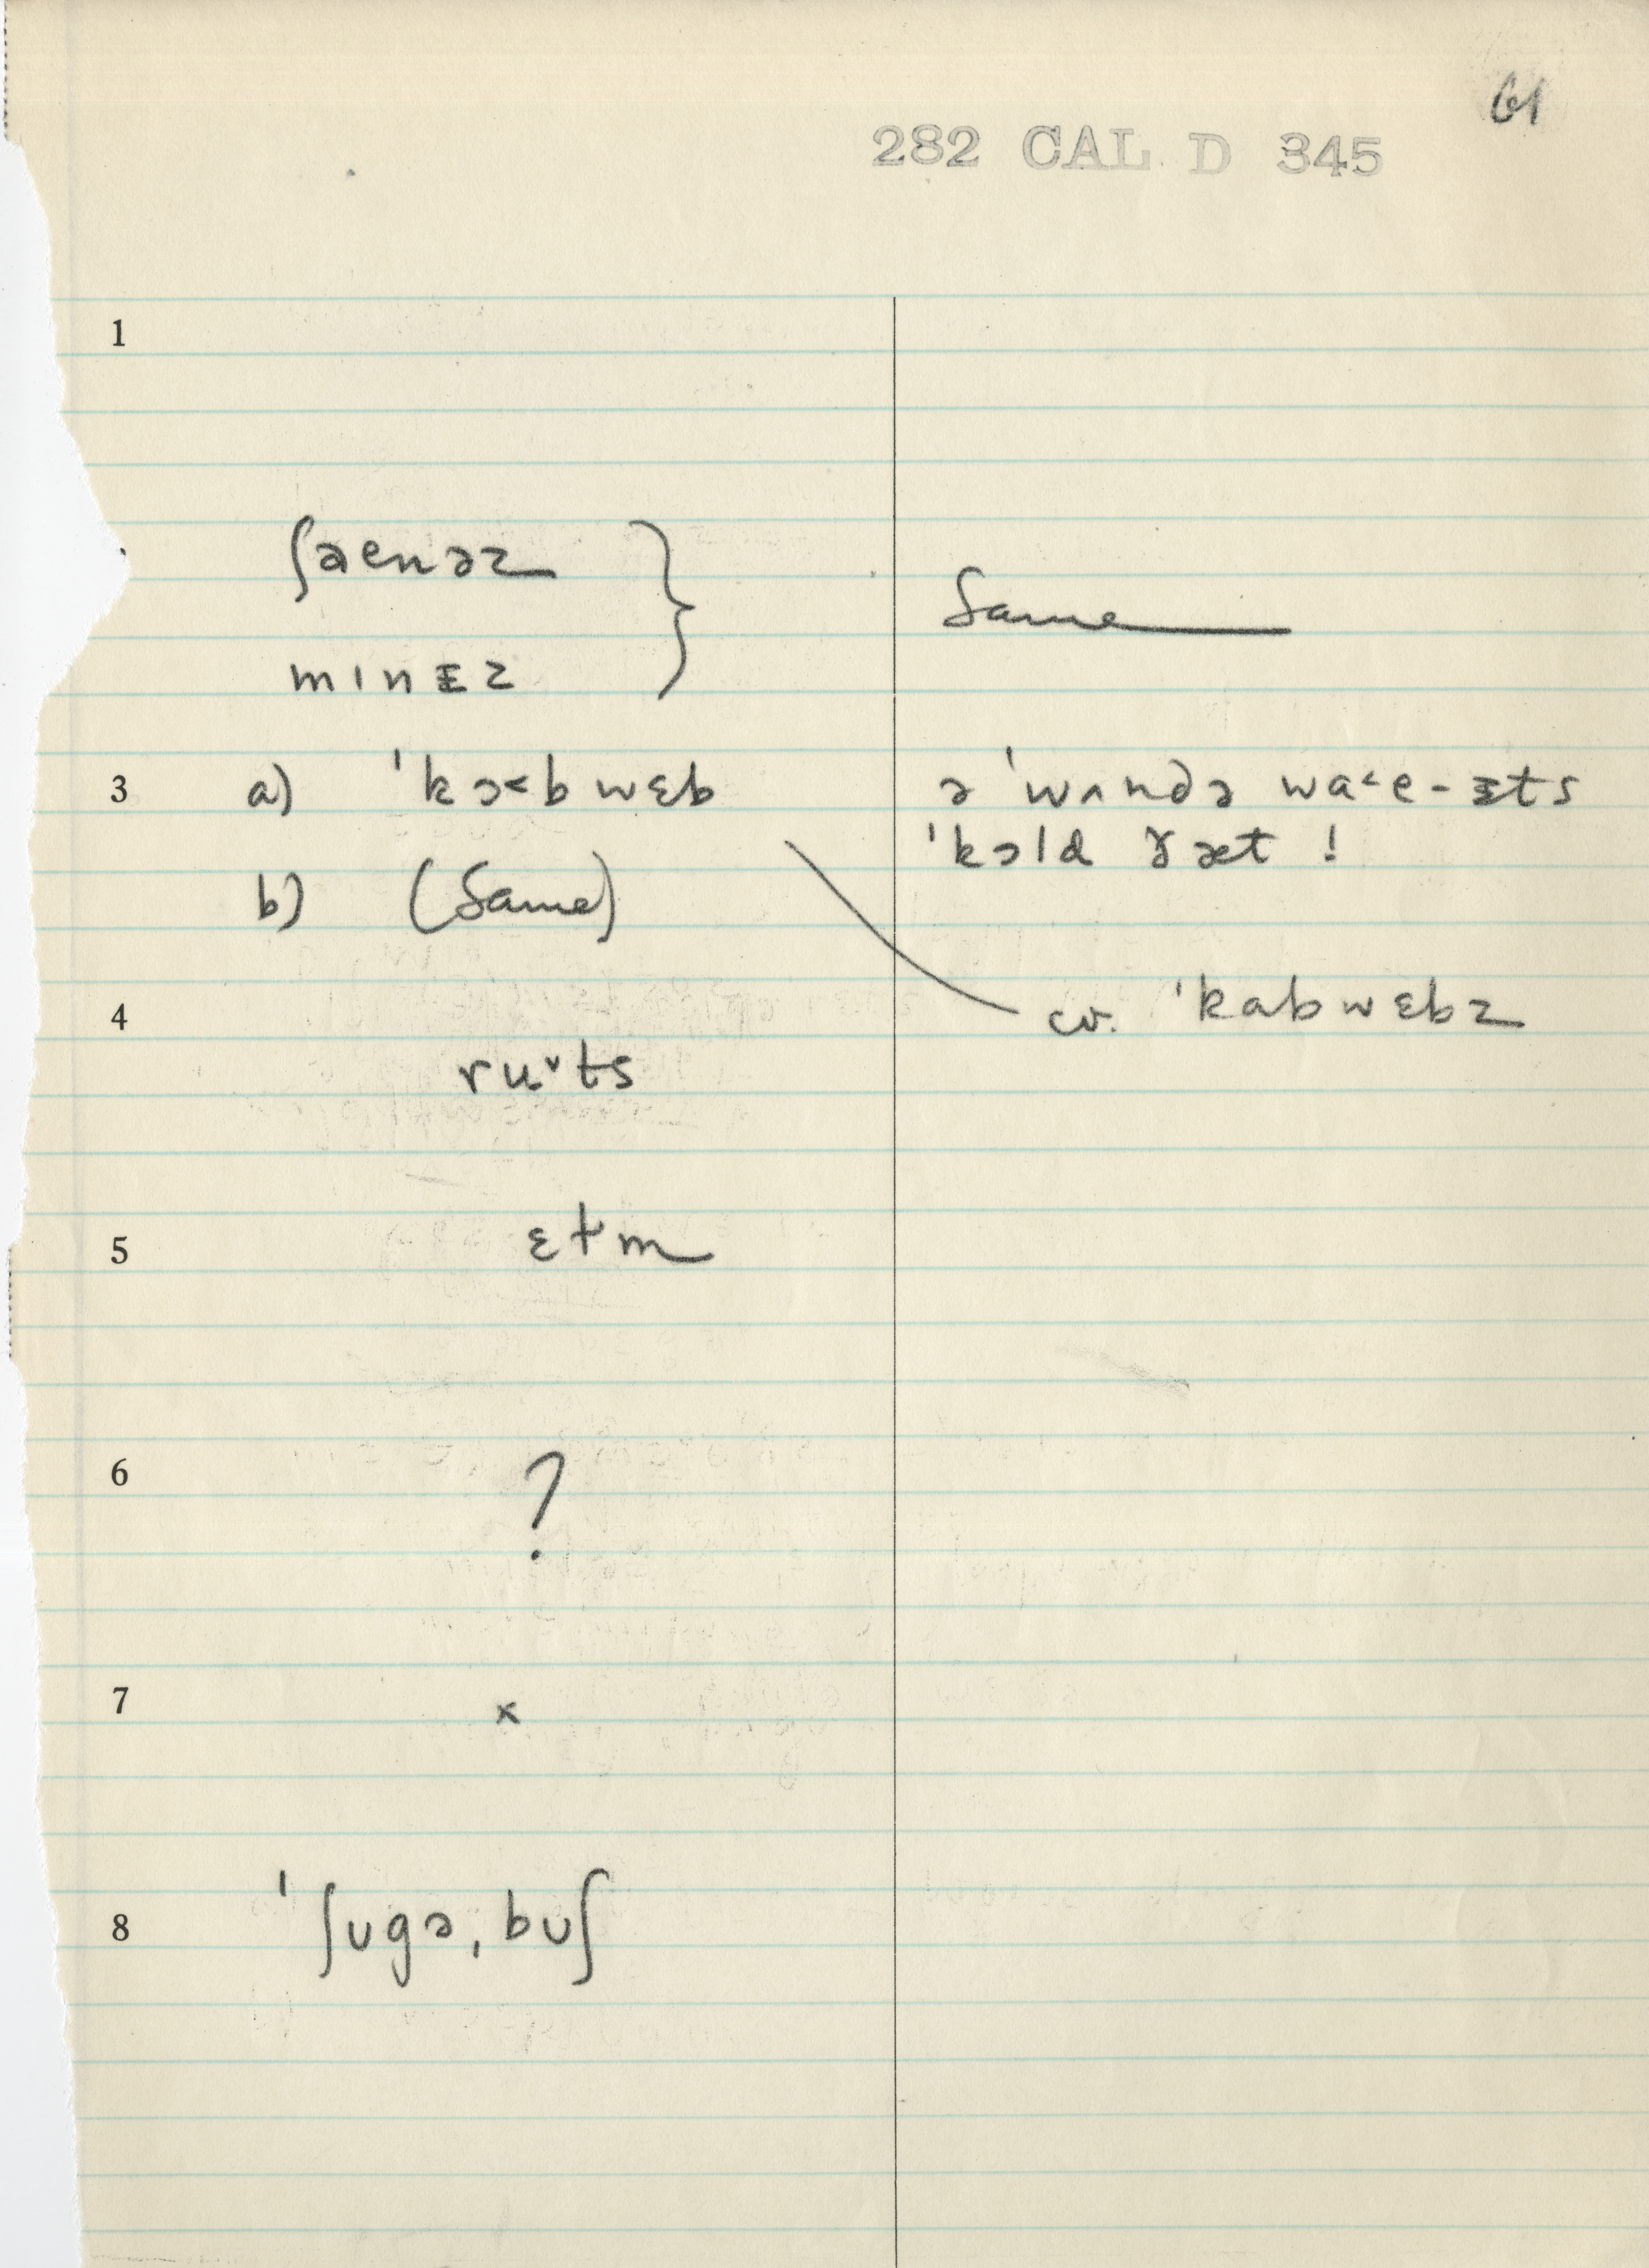 61
282 CAL D 345
1
ʃaenəz } Same
mɪnᵻz
3 a) ˈkɔ˂bwɛb ə ˈwʌndə wa˂e-ᵻts
ˈkɔld ðæt !
b) (Same)
4 cv. ˈkabwɛbz
ru˅ts
5 ɛtm
6 ?
7 x
8 ˈʃugə,buʃ